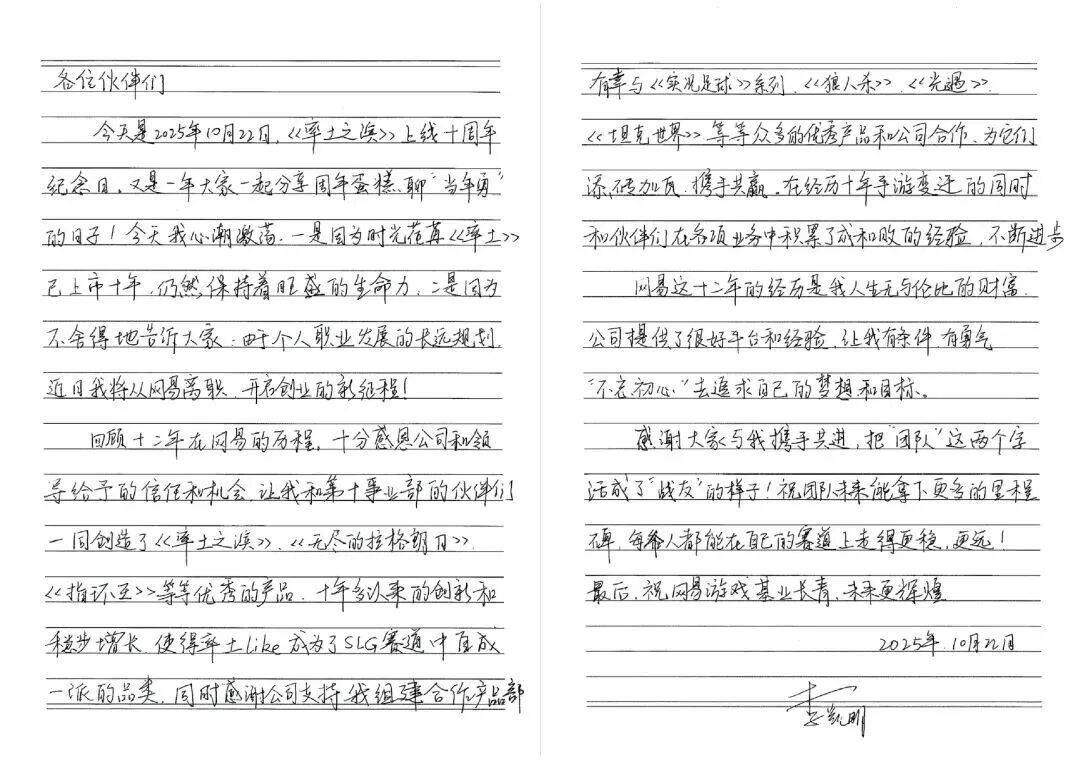 各位伙伴们
今天是2025年10月22日,《率土之滨》上线十周年
纪念日,又是一年大家一起分享周年蛋糕、聊“当年勇”
的日子!今天我心潮激荡,一是因为时光荏苒《率土》
已上市十年,仍然保持着旺盛的生命力,二是因为
不舍得地告诉大家,由于个人职业发展的长远规划,
近日我将从网易离职,开启创业的新征程!
回顾十二年在网易的历程,十分感恩公司和领
导给予的信任和机会,让我和第十事业部的伙伴们
一同创造了《率土之滨》、《无尽的拉格朗日》、
《指环王》等等优秀的产品,十年多以来的创新和
稳步增长,使得率土Like成为了SLG赛道中自成
一派的品类,同时感谢公司支持我组建合作产品部
有幸与《实况足球》系列、《狼人杀》、《光遇》、
《坦克世界》等等众多的优秀产品和公司合作,为它们
添砖加瓦、携手共赢。在经历十年手游变迁的同时
和伙伴们在各项业务中积累了成和败的经验,不断进步
网易这十二年的经历是我人生无与伦比的财富,
公司提供了很好平台和经验,让我有条件,有勇气
“不忘初心”去追求自己的梦想和目标。
感谢大家与我携手共进,把“团队”这两个字
活成了“战友”的样子!祝团队未来能拿下更多的里程
碑,每个人都能在自己的赛道上走得更稳,更远!
最后,祝网易游戏基业长青,未来更辉煌
2025年10月22日
李凯明